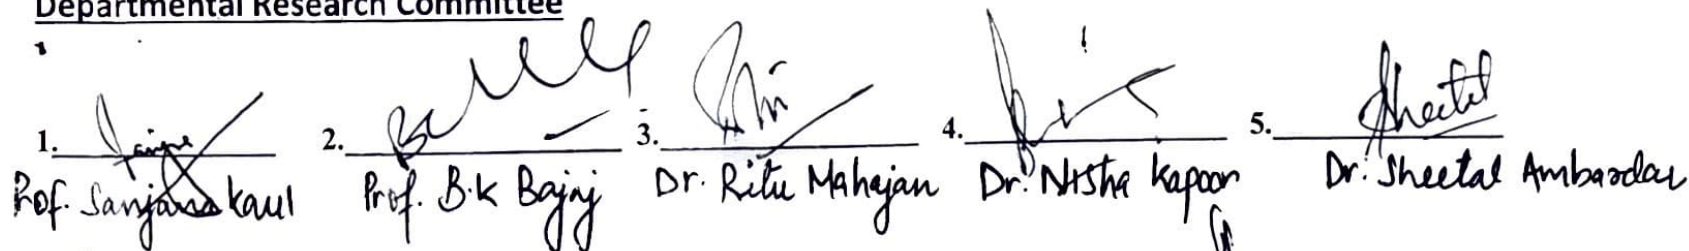 Departmental Research Committee
1. 2. 3. 4. 5. Sheetal
Prof. Sanjana Kaul Prof. B.K Bajaj Dr. Ritu Mahajan Dr. Nisha Kapoor Dr. Sheetal Ambardar